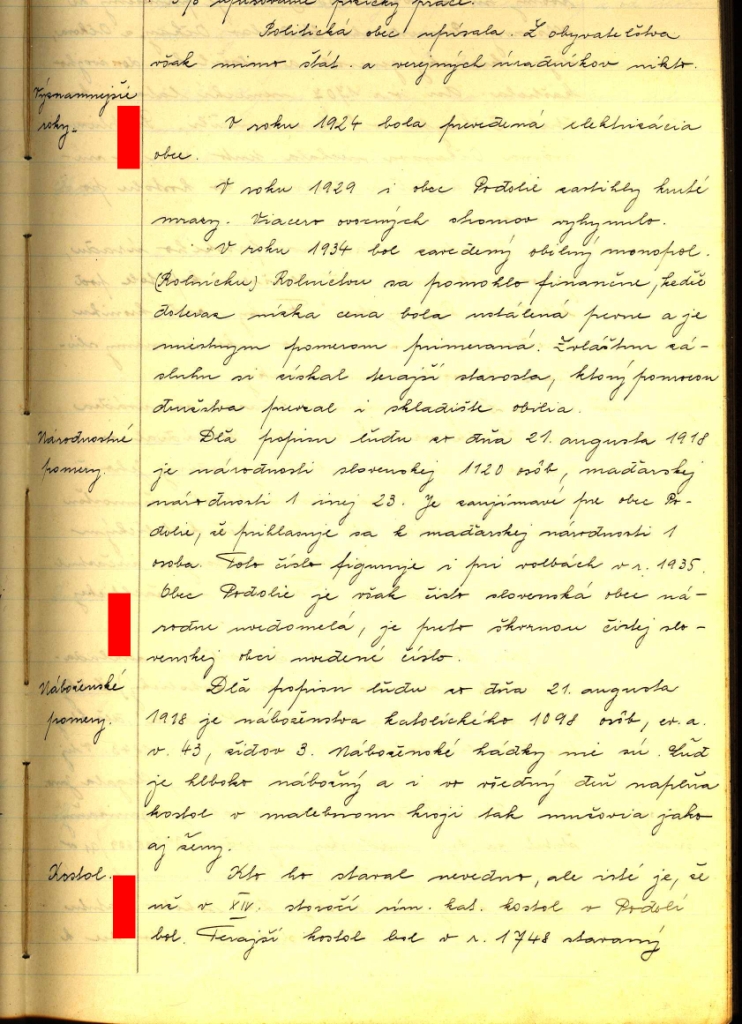 5% upisovanie pôžičky práce.
Politická obec upísala. Z obyvateľstva
však mimo štát. a verejných úradníkov nikto.
Významnejšie
roky.
V roku 1924 bola prevedená elektrizácia
obce.
V roku 1929 i obec Podolie zastihly kruté
mrazy. Viacero ovocných stromov vyhynulo.
V roku 1934 bol zavedený obilný monopol.
(Rolnícku) Rolníctvu sa pomohlo finančne, keďže
doteraz nízka cena bola ustálená pevne a je
miestnym pomerom primeraná. Zvláštnu zá-
sluhu si získal terajší starosta, ktorý pomocou
družstva prevzal i skladište obilia.
Národnostné
pomery.
Dľa popisu ľudu zo dňa 21. augusta 1918
je národnosti slovenskej 1120 osôb, maďarskej
národnosti 1 inej 23. Je zaujímavé pre obec Po-
dolie, že prihlasuje sa k maďarskej národnosti 1
osoba. Toto číslo figuruje i pri voľbách v r. 1935.
Obec Podolie je však čisto slovenská obec ná-
rodne uvedomelá, je preto škvrnou čistej slo-
venskej obci uvedené číslo.
Náboženské
pomery.
Dľa popisu ľudu zo dňa 21. augusta
1918 je náboženstva katolíckého 1098 osôb, ev. a.
v. 43, židov 3. Náboženské hádky nie sú. Ľud
je hlboko nábožný a i vo všedný deň naplňa
kostol v malebnom kroji tak mužovia jako
aj ženy.
Kostol.
Kto ho staval nevedno, ale isté je, že
už v XIV. storočí rím. kat. kostol v Podolí
bol. Terajší kostol bol v r. 1748 stavaný